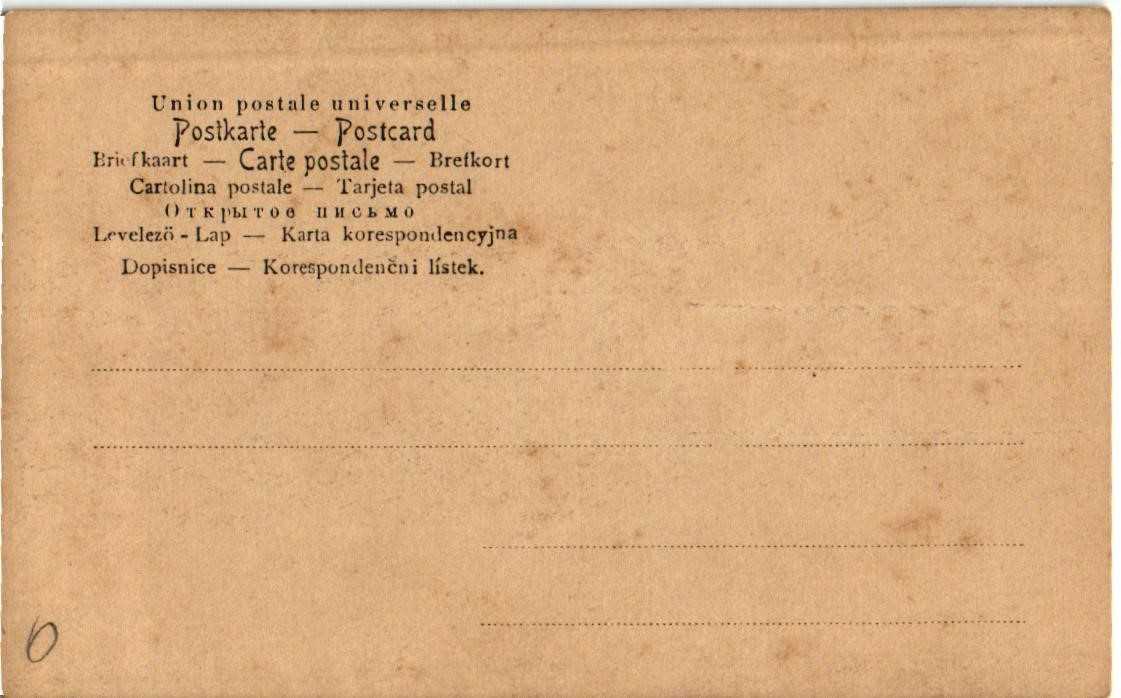 Union postale universelle
Postkarte — Postcard
Briefkaart — Carte postale — Brefkort
Cartolina postale — Tarjeta postal
Открытое письмо
Levelező - Lap — Karta korespondencyjna
Dopisnice — Korespondenčni lístek.